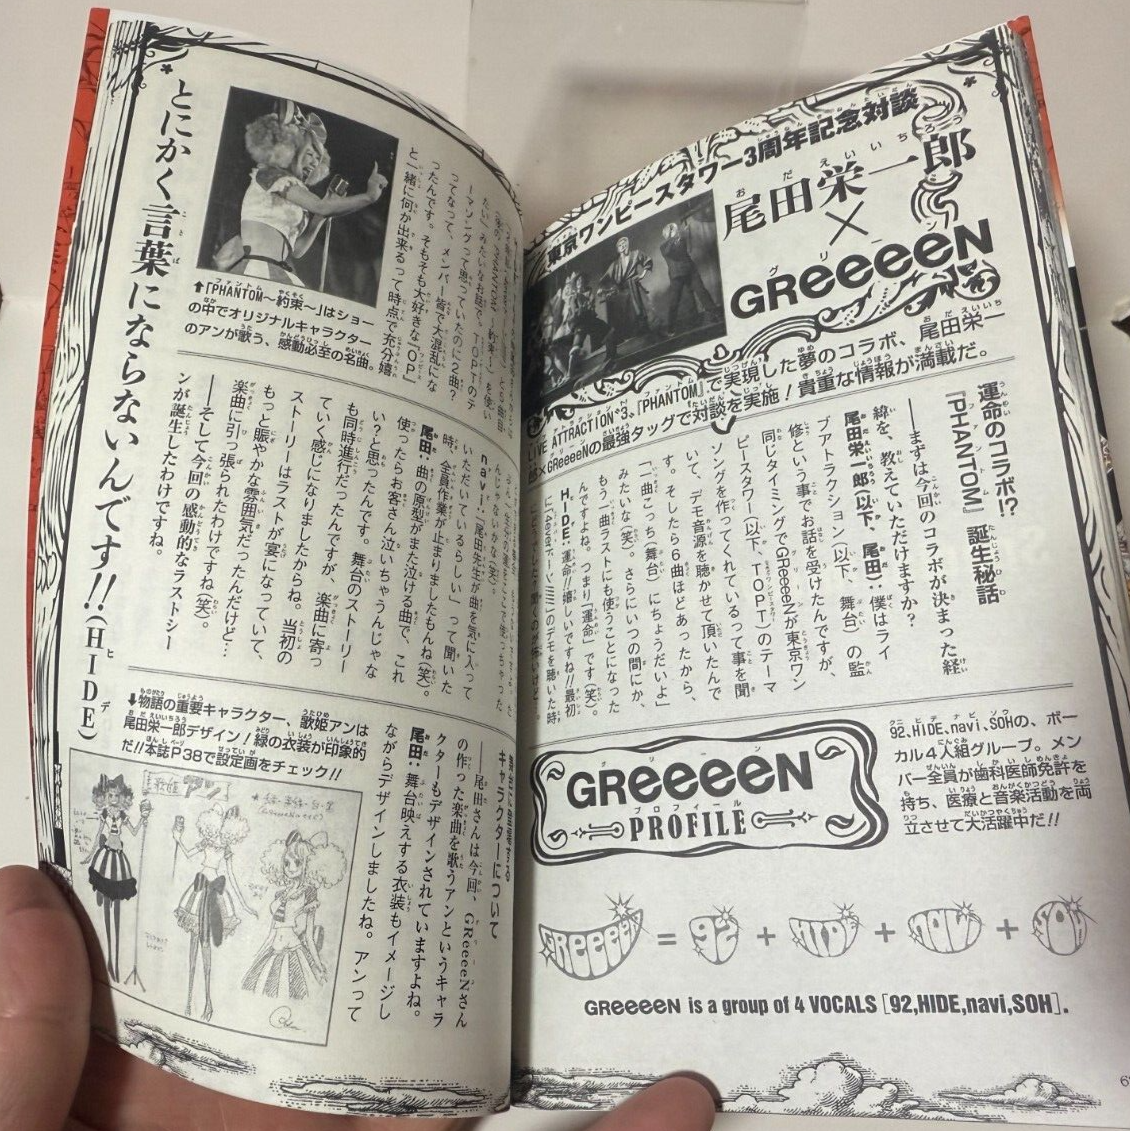 東京ワンピースタワー3周年記念対談
尾田栄一郎
×
GReeeeN
LIVE ATTRACTION"3、『PHANTOM』で実現した夢のコラボ、尾田栄一
郎×GReeeeNの最強タッグで対談を実施!貴重な情報が満載だ。
運命のコラボ!?
『PHANTOM』誕生秘話
――まずは今回のコラボが決まった経
緯を、教えていただけますか?
尾田栄一郎(以下、尾田):僕はライ
ブアトラクション(以下、舞台)の監
修という事でお話を受けたんですが、
同じタイミングでGReeeeNが東京ワン
ピースタワー(以下、TOPT)のテーマ
ソングを作ってくれているって事を聞
いて、デモ音源を聴かせて頂いたんで
す。そしたら6曲ほどあったから、
「一曲こっち(舞台)にちょうだいよ」
みたいな(笑)。さらにいつの間にか、
もう一曲ラストにも使うことになった
んですよね。つまり「運命」です(笑)。
HIDE:運命!!嬉しいですね!!最初
GReeeeN
プロフィール
PROFILE
92、HIDE、navi、SOHの、ボー
カル4人組グループ。メン
バー全員が歯科医師免許を
持ち、医療と音楽活動を両
立させて大活躍中だ!!
GReeeeN = 92 + HIDE + navi + SOH
GReeeeN is a group of 4 VOCALS [92,HIDE,navi,SOH].
とにかく言葉にならないんです!!(HIDE)
↑『PHANTOM〜約束〜』はショー
の中でオリジナルキャラクター
のアンが歌う、感動必至の名曲。
たい」みたいなお話で。TOPTのテ
ーマソングって思っていたのに2曲?
ってなって、メンバー皆で大混乱にな
ったんです。そもそも大好きな「OP」
と一緒に何か出来るって時点で充分嬉
んじゃないかな(笑)。
navi:「尾田先生が曲を気に入って
いただいているらしい」って聞いた
時、全員作業が止まりましたもんね(笑)。
尾田:曲の原型がまた泣ける曲で、これ
使ったらお客さん泣いちゃうんじゃな
い?と思ったんです。舞台のストーリー
も同時進行だったんですが、楽曲に寄っ
ていく感じになりましたからね。当初の
ストーリーはラストが宴になっていて、
もっと賑やかな雰囲気だったんだけど…
楽曲に引っ張られたわけですね(笑)。
――そして今回の感動的なラストシー
ンが誕生したわけですね。
↓物語の重要キャラクター、歌姫アンは
尾田栄一郎デザイン!緑の衣装が印象的
だ!!本誌P38で設定画をチェック!!
キャラクターについて
――尾田さんは今回、GReeeeNさん
の作った楽曲を歌うアンというキャラ
クターもデザインされていますよね。
尾田:舞台映えする衣装もイメージし
ながらデザインしましたね。アンって
歌姫 アン